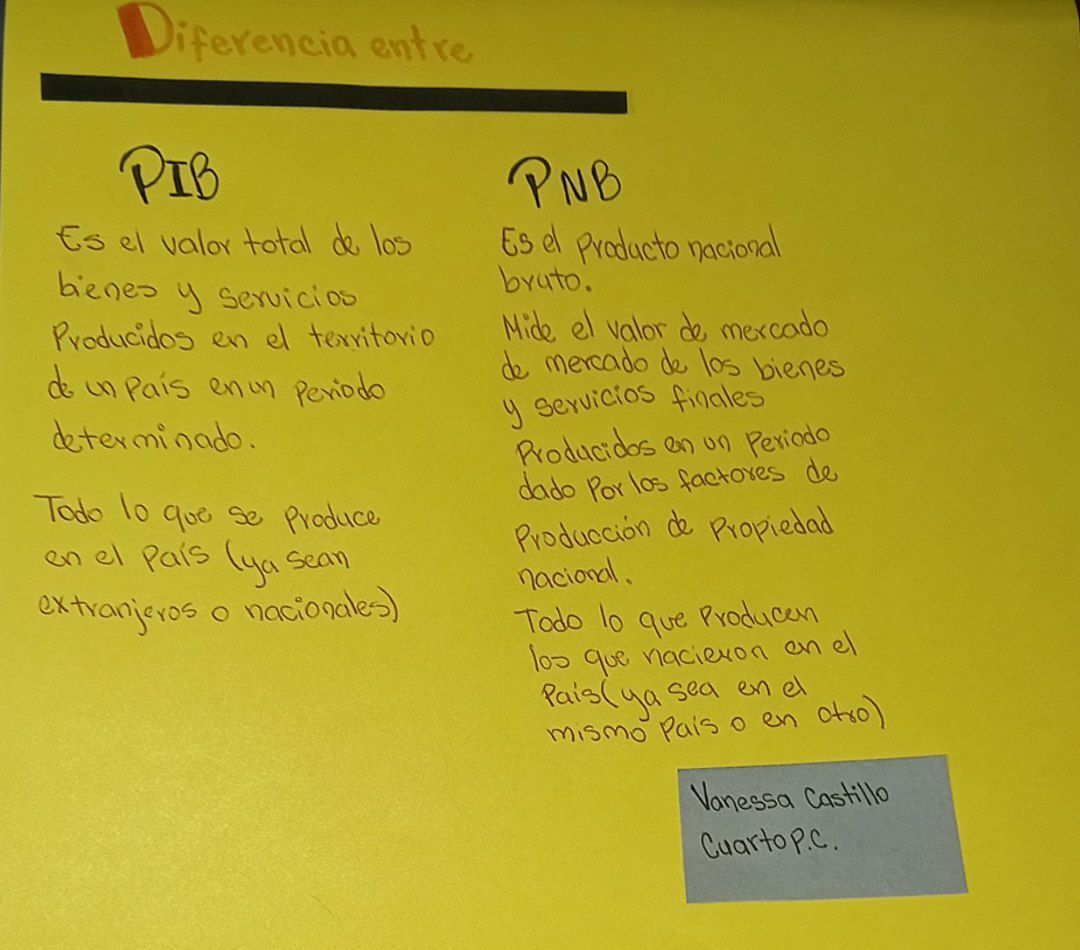 Diferencia entre
PIB
Es el valor total de los
bienes y servicios
Producidos en el territorio
de un País en un Periodo
determinado.
Todo lo que se Produce
en el País (ya sean
extranjeros o nacionales)
PNB
Es el Producto nacional
bruto.
Mide el valor de mercado
de mercado de los bienes
y servicios finales
Producidos en un Periodo
dado Por los factores de
Producción de Propiedad
nacional.
Todo lo que Producen
los que nacieron en el
País (ya sea en el
mismo País o en otro)
Vanessa Castillo
Cuarto P.C.